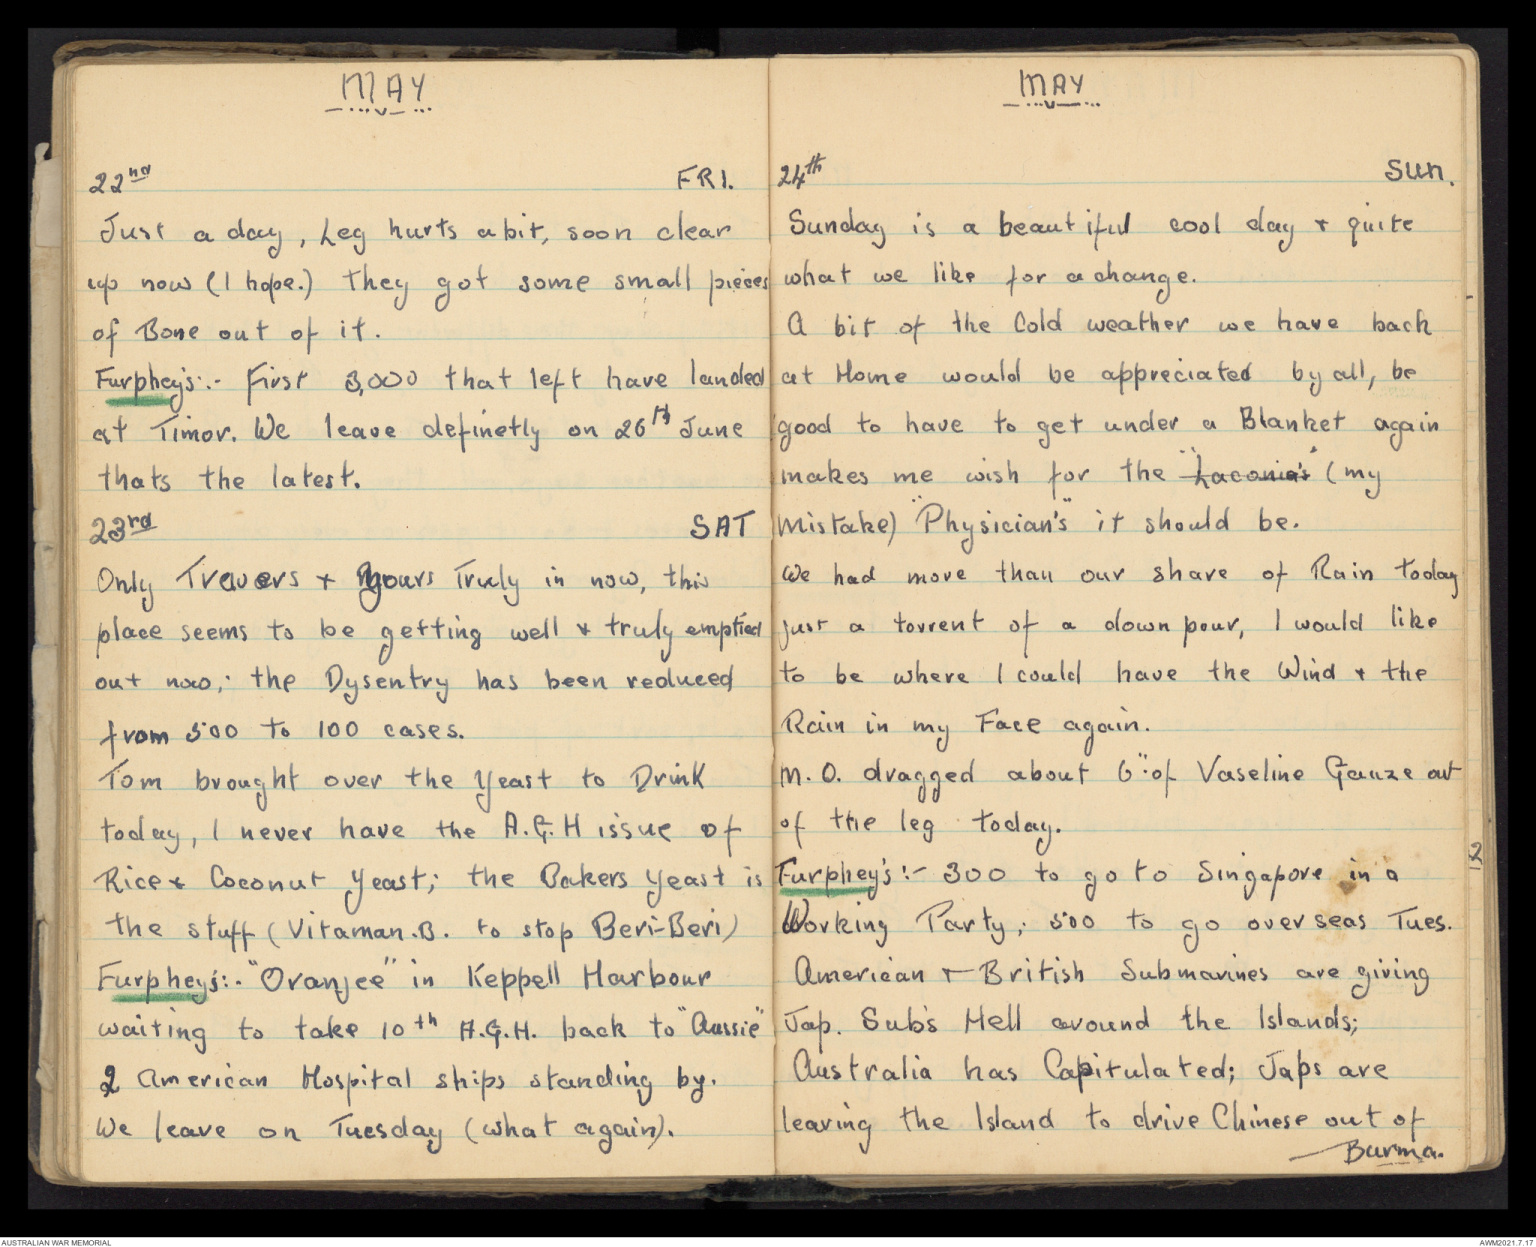 MAY
22nd FRI.
Just a day, Leg hurts abit, soon clear
up now (I hope.) they got some small pieces
of Bone out of it.
Furphey's:- First 3,000 that left have landed
at Timor. We leave definetly on 26th June
thats the latest.
23rd SAT
Only Travers + Yours Truly in now, this
place seems to be getting well + truly emptied
out now; the Dysentry has been reduced
from 500 to 100 cases.
Tom brought over the Yeast to Drink
today, I never have the A.G.H issue of
Rice + Coconut Yeast; the Bakers Yeast is
the stuff (Vitaman.B. to stop Beri-Beri)
Furphey's:- "Oranjee" in Keppell Harbour
waiting to take 10th A.G.H. back to "Aussie"
2 American Hospital ships standing by.
We leave on Tuesday (what again).
MAY
24th Sun.
Sunday is a beautiful cool day + quite
what we like for a change.
A bit of the Cold weather we have back
at Home would be appreciated by all, be
good to have to get under a Blanket again
makes me wish for the "Laconia's" (my
mistake) "Physician's" it should be.
We had more than our share of Rain today
just a torrent of a down pour, I would like
to be where I could have the Wind + the
Rain in my Face again.
M.O. dragged about 6" of Vaseline Gauze out
of the leg today.
Furphey's:- 300 to go to Singapore in a
Working Party; 500 to go overseas Tues.
American + British Submarines are giving
Jap. Sub's Hell around the Islands;
Australia has Capitulated; Japs are
leaving the Island to drive Chinese out of
Burma.
2
AUSTRALIAN WAR MEMORIAL
AWM2021.7.17